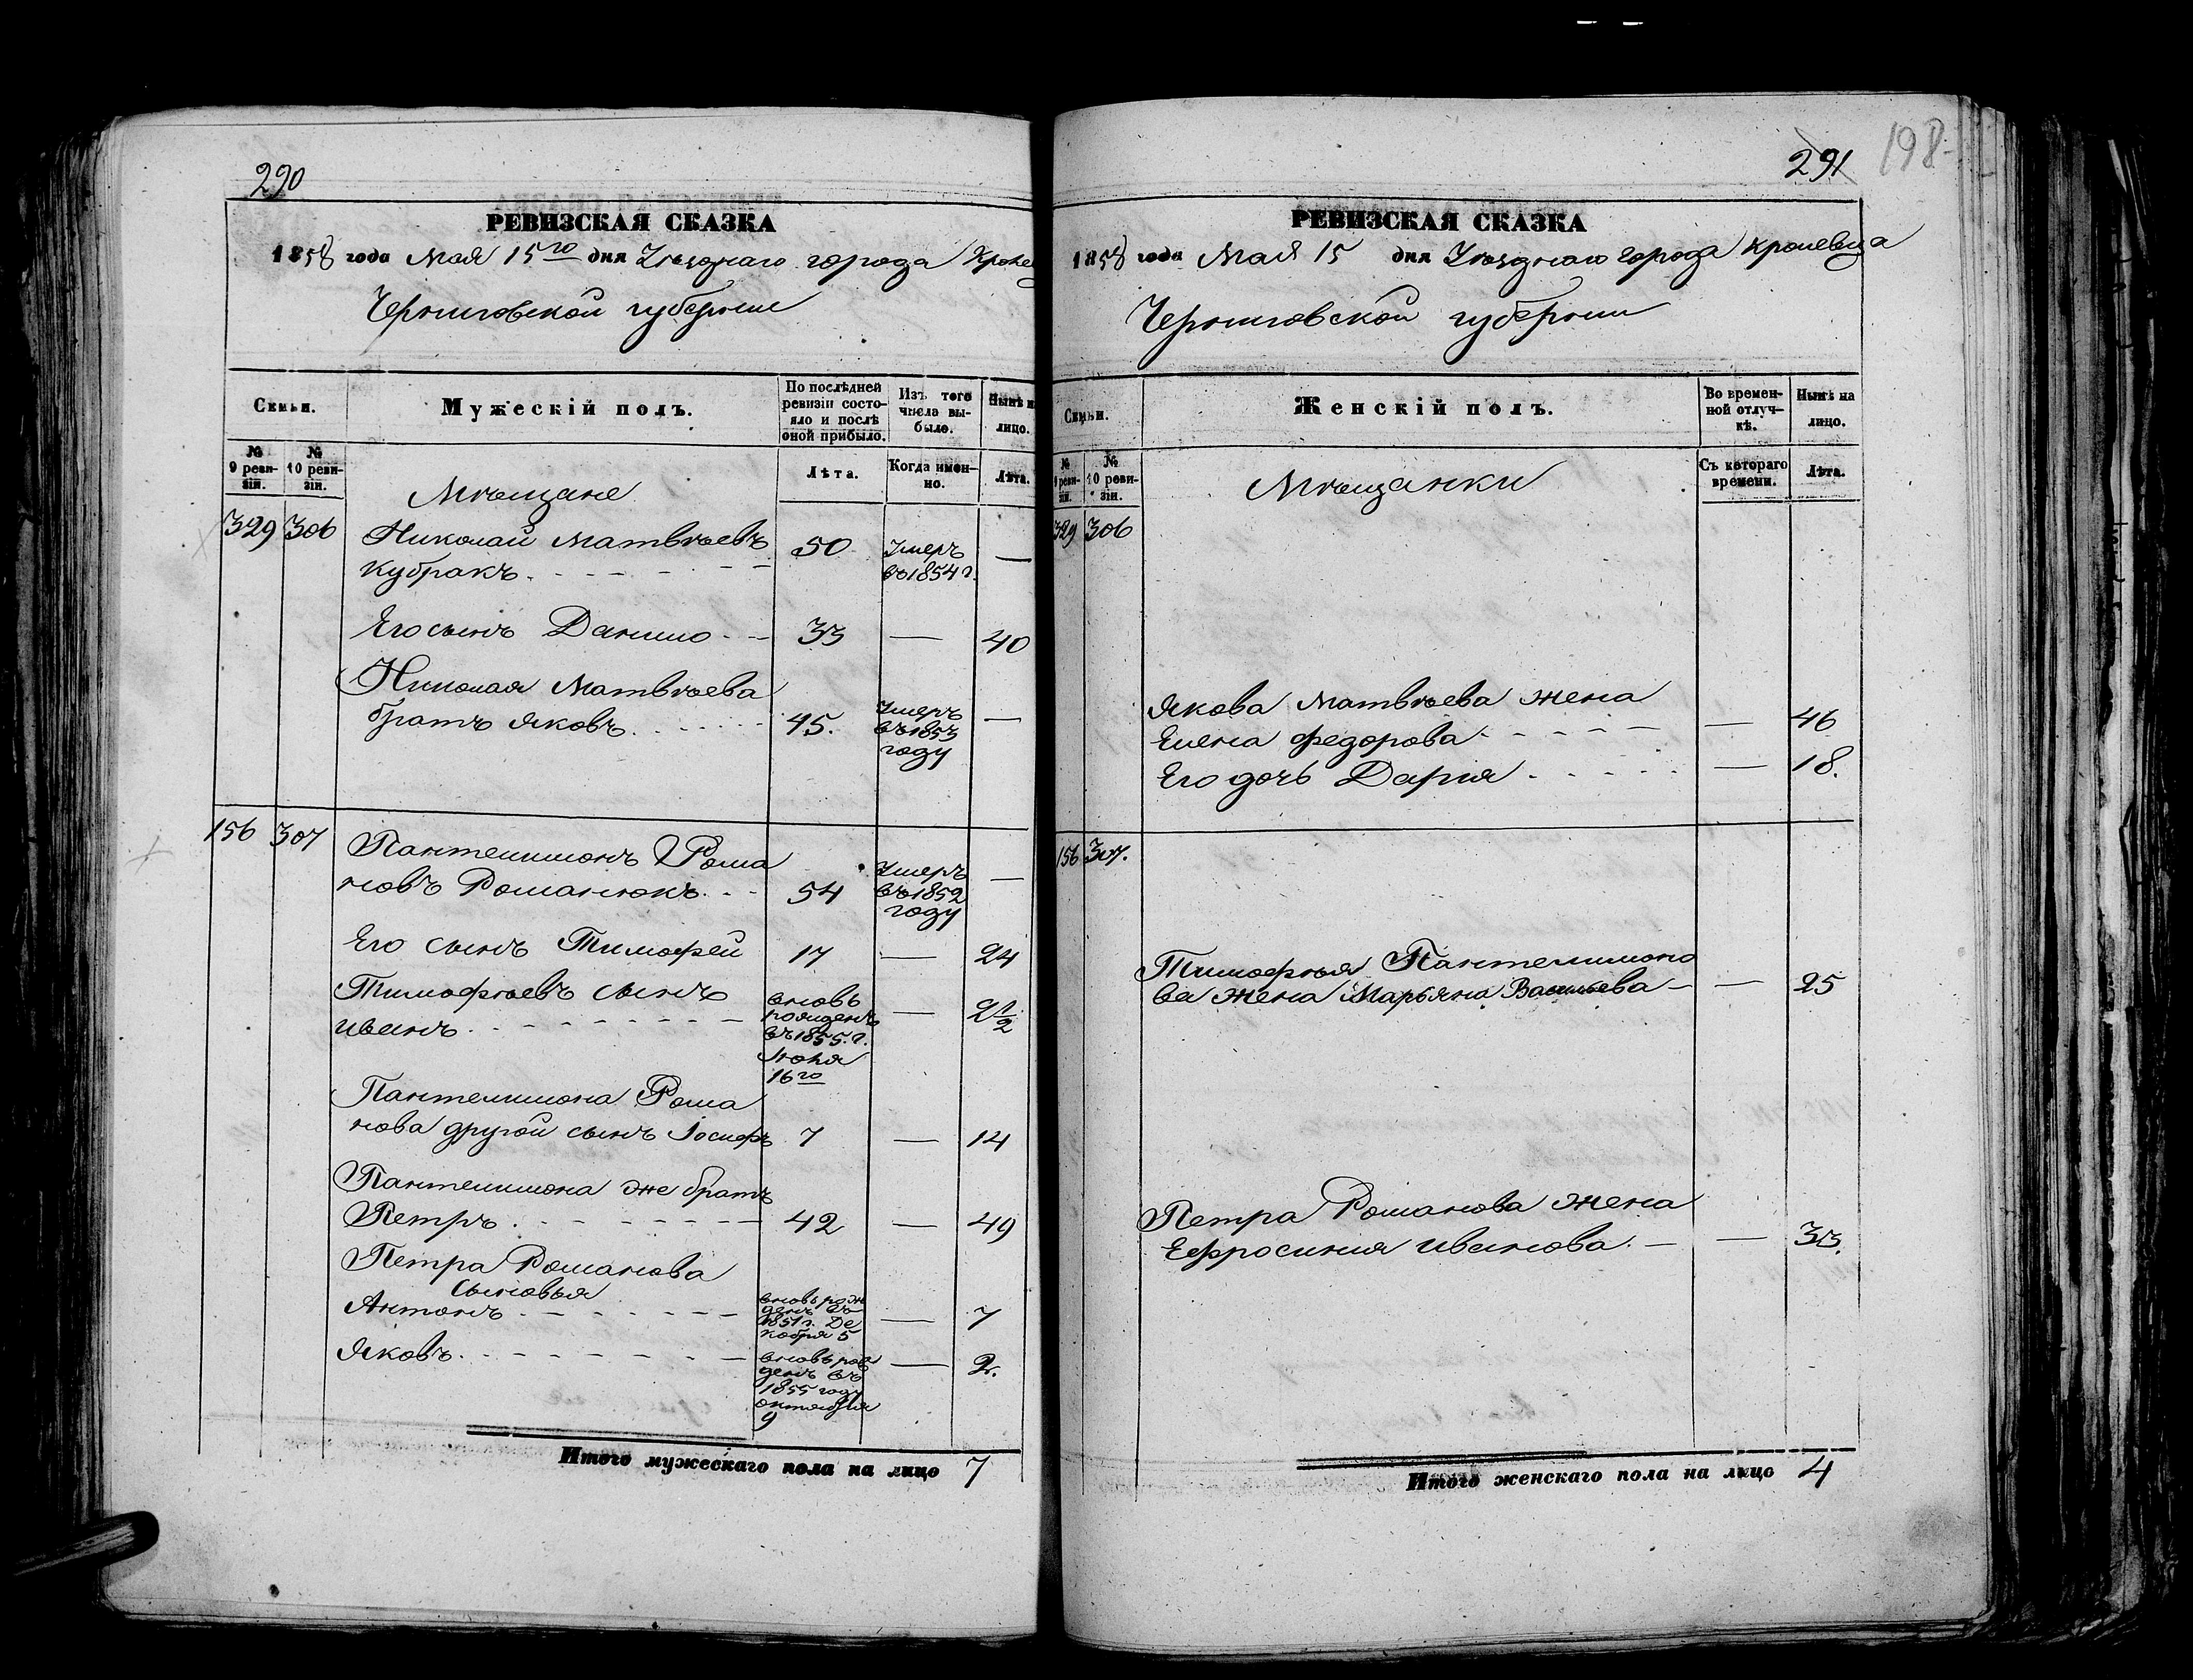 290
РЕВИЗСКАЯ СКАЗКА
1858 года Мая 15го дня Уѣзднаго города Кролев
Черниговской губернии
Семьи.
Мужескій полъ.
По послѣдней ревизіи состояло и послѣ оной прибыло.
Изъ того числа выбыло.
Нынѣ на лицо.
№ 9 ревизіи.
№ 10 ревизіи.
Мѣщане
Лѣта.
Когда именно.
Лѣта.
329 306 Николай Матвѣевъ
Кубракъ 50 Умеръ въ 1854 г. —
Его сынъ Данило 33 — 40
Николая Матвѣева
братъ Яковъ 45. Умеръ въ 1853 году —
156 307 Пантелимонъ Рома
новъ Романюкъ 54 Умеръ въ 1852 году —
Его сынъ Тимофей 17 — 24
Тимофѣевъ сынъ
Иванъ вновь рожденъ въ 1855. г. Июня 16го — 2 1/2
Пантелимона Рома
нова другой сынъ Іосифъ 7 — 14
Пантелимона же братъ
Петръ 42 — 49
Петра Романова
сыновья
Антонъ вновь рожденъ въ 1851 г. Декабря 5 — 7
Яковъ вновь рожденъ въ 1855 году октября 9 — 2.
Итого мужескаго пола на лицо 7
291
198
РЕВИЗСКАЯ СКАЗКА
1858 года Мая 15 дня Уѣзднаго города Кролевца
Черниговской губернии
Семьи.
Женскій полъ.
Во временной отлучкѣ.
Нынѣ на лицо.
№ 9 ревизіи.
№ 10 ревизіи.
Мѣщанки
Съ котораго времени.
Лѣта.
329 306
Якова Матвѣева жена
Елена Федорова — 46
Его дочь Дарія — 18.
156 307.
Тимофѣя Пантелимоно
ва жена Марьяна Васильева — 25
Петра Романова жена
Ефросиния Иванова. — 33.
Итого женскаго пола на лицо 4